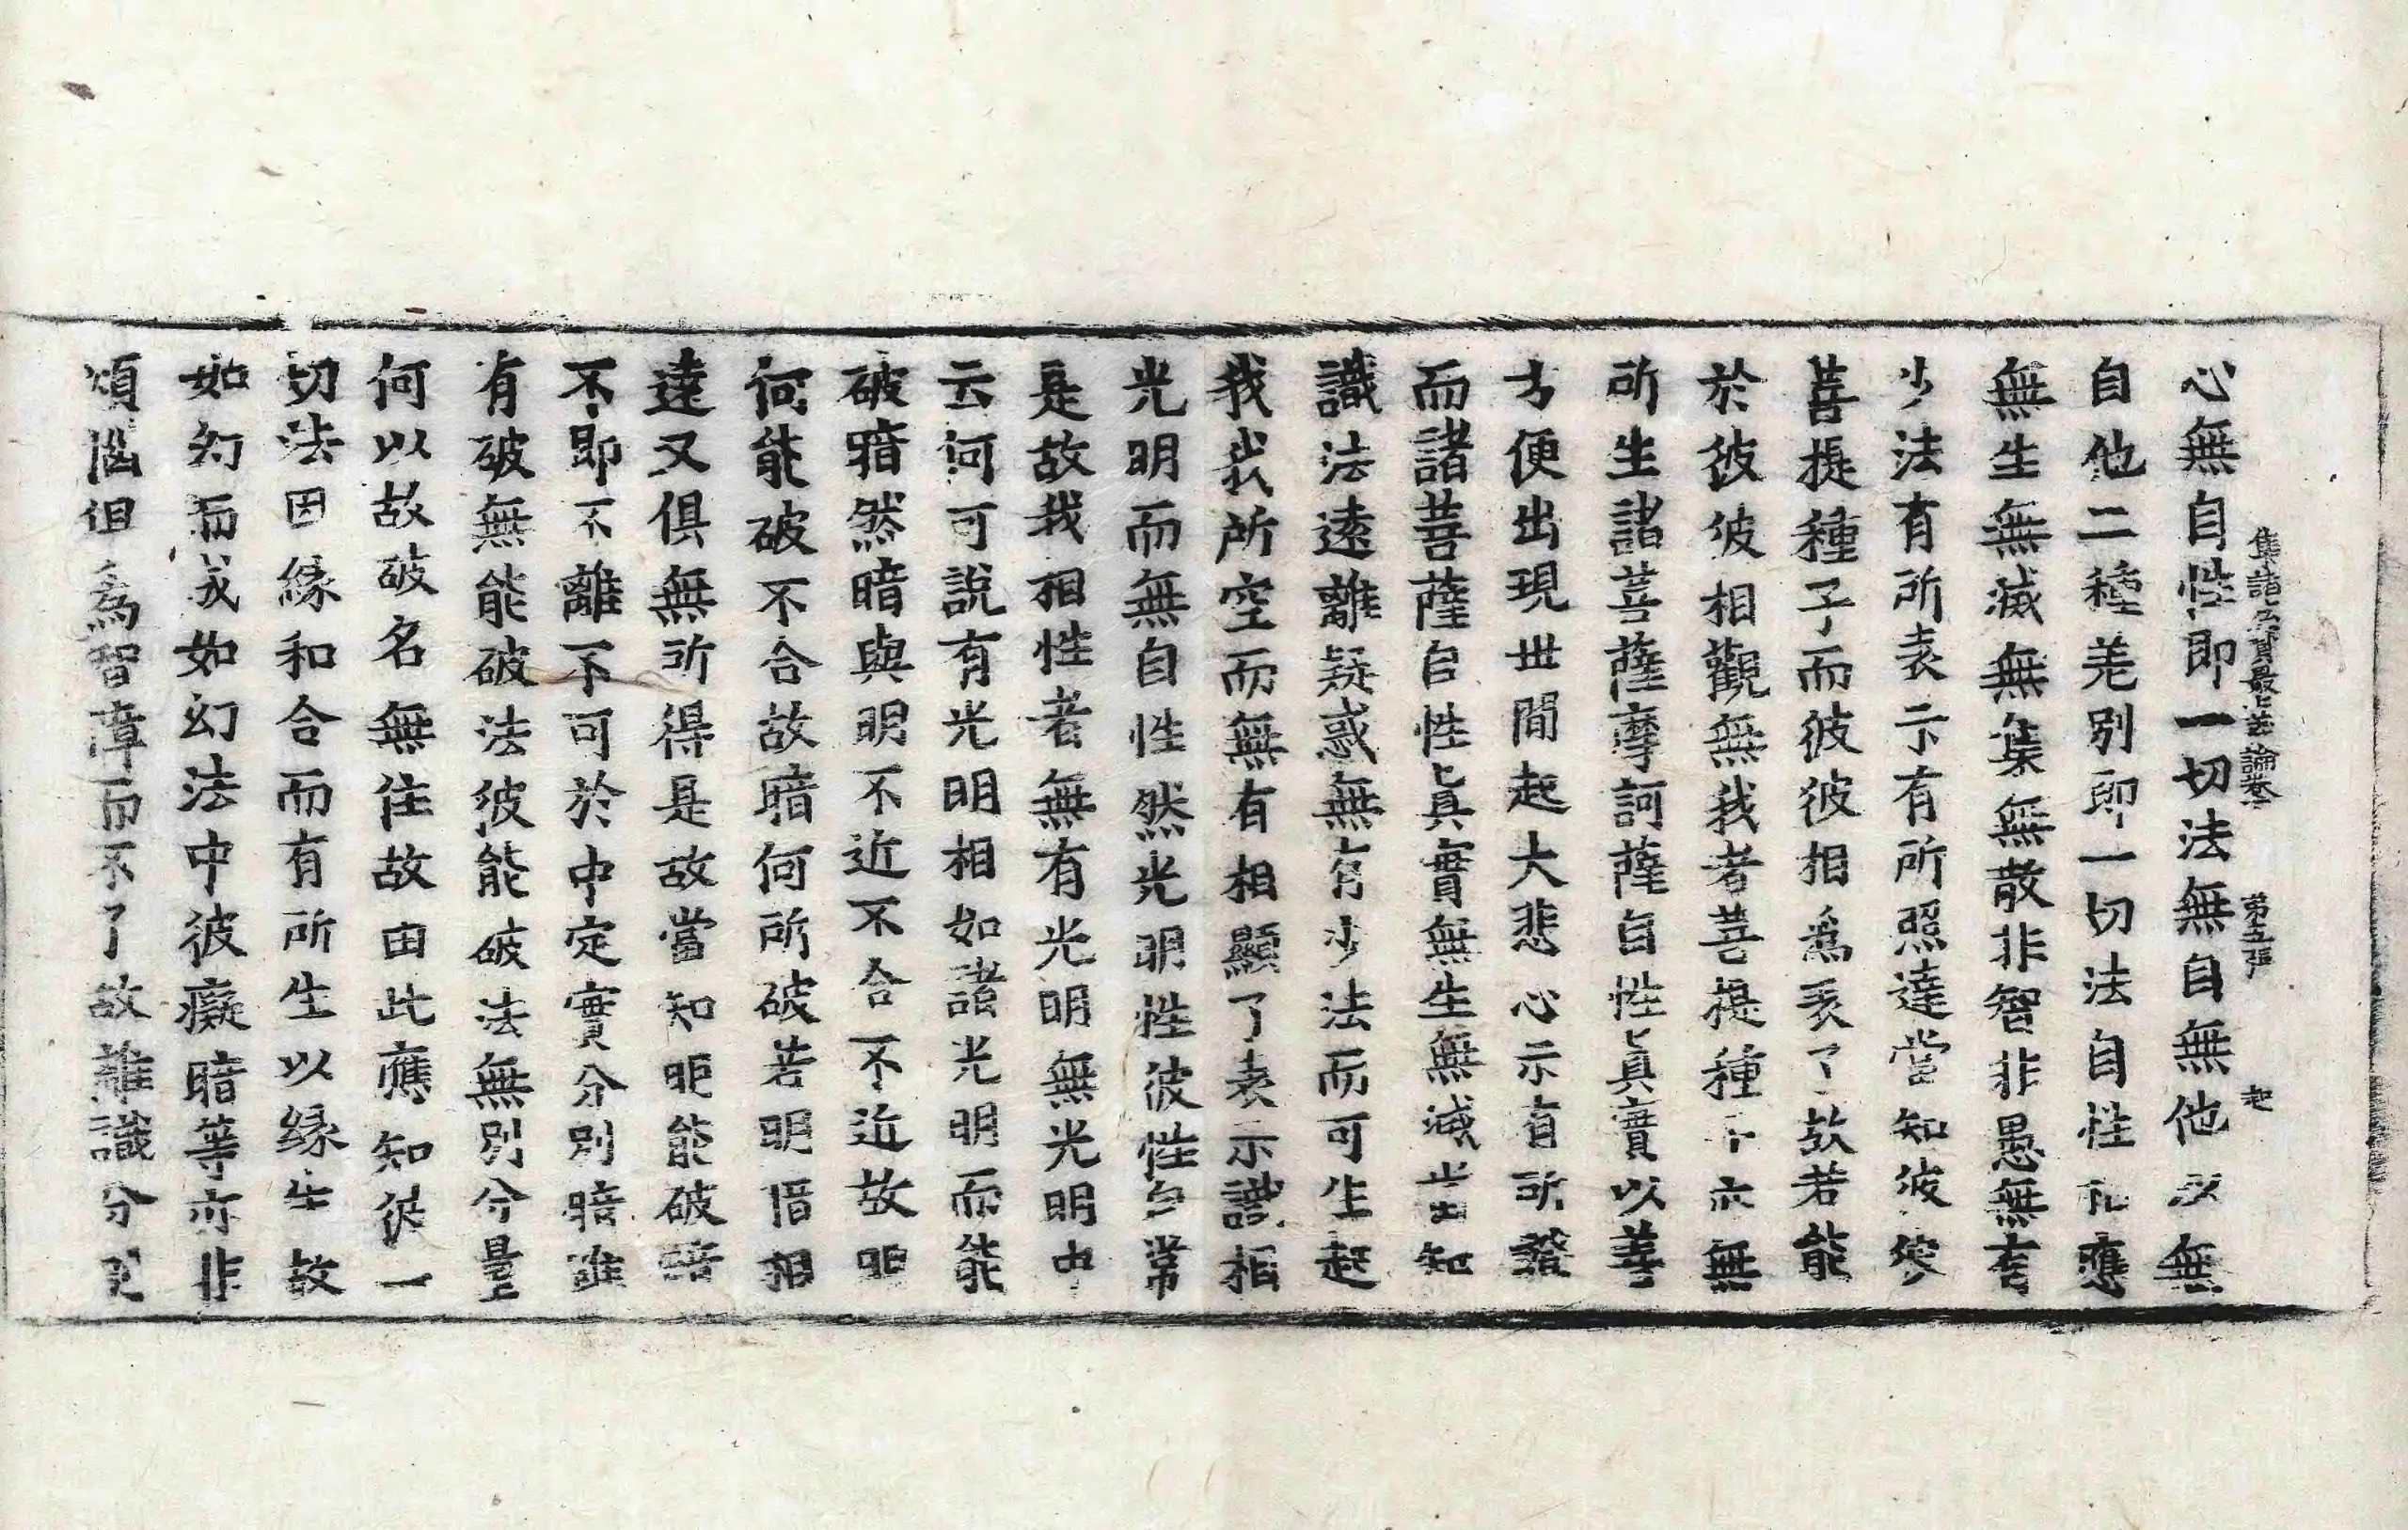 集諸法寶最上義論卷上 第五張 起
心無自性即一切法無自無他以無
自他二種差別即一切法自性相應
無生無滅無集無散非智非愚無有
少法有所表示有所照達當知彼密
菩提種子而彼彼相爲表了故若能
於彼彼相觀無我者菩提種子亦無
所生諸菩薩摩訶薩自性眞實以善
方便出現世間起大悲心示有所證
而諸菩薩自性眞實無生無滅當知
識法遠離疑惑無有少法而可生起
我我所空而無有相顯了表示識相
光明而無自性然光明性彼性自常
是故我相性者無有光明無光明中
云何可說有光明相如諸光明而能
破暗然暗與明不近不合不近故明
何能破不合故暗何所破若明暗相
違又俱無所得是故當知明能破暗
不即不離不可於中定實分別暗雖
有破無能破法彼能破法無別分量
何以故破名無住故由此應知從一
切法因緣和合而有所生以緣生故
如幻而成如幻法中彼癡暗等亦非
煩惱但爲智障而不了故離識分別